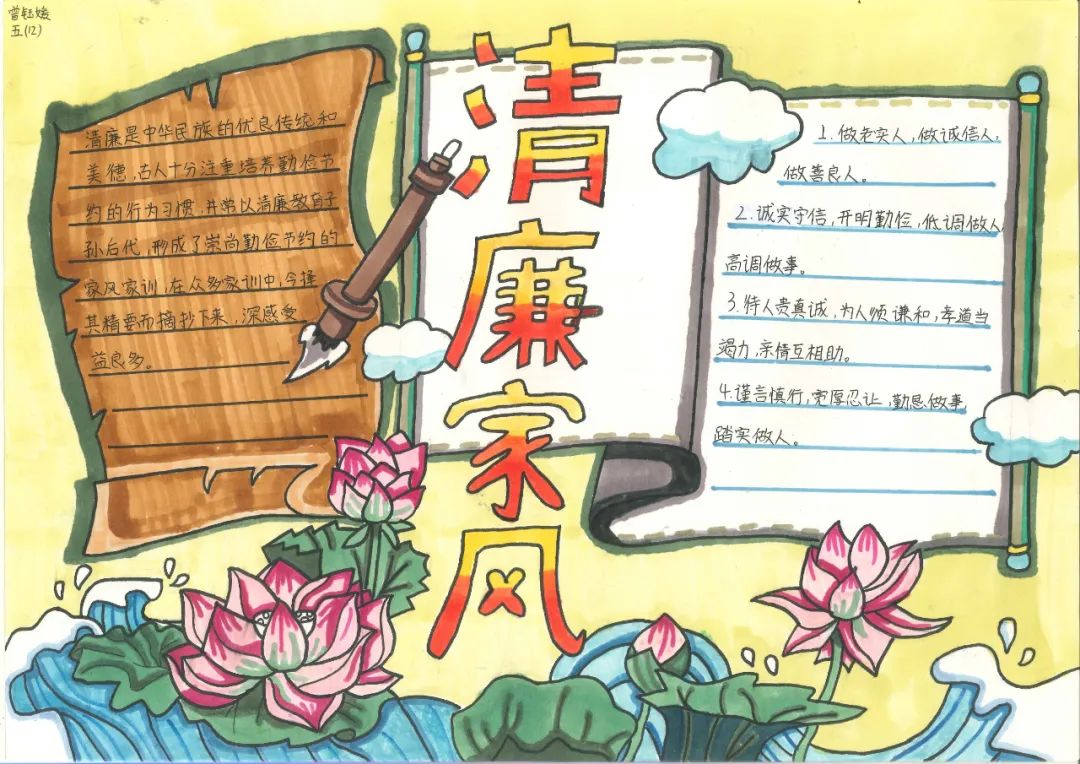 曾钰媛
五(12)
清廉家风
清廉是中华民族的优良传统和
美德,古人十分注重培养勤俭节
约的行为习惯,并常以清廉教育子
孙后代,形成了崇尚勤俭节约的
家风家训,在众多家训中,今择
其精要而摘抄下来,深感受
益良多。
1.做老实人,做诚信人,
做善良人。
2.诚实守信,开明勤俭,低调做人
高调做事。
3.待人贵真诚,为人须谦和,孝道当
竭力,亲情互相助。
4.谨言慎行,宽厚忍让,勤恳做事,
踏实做人。